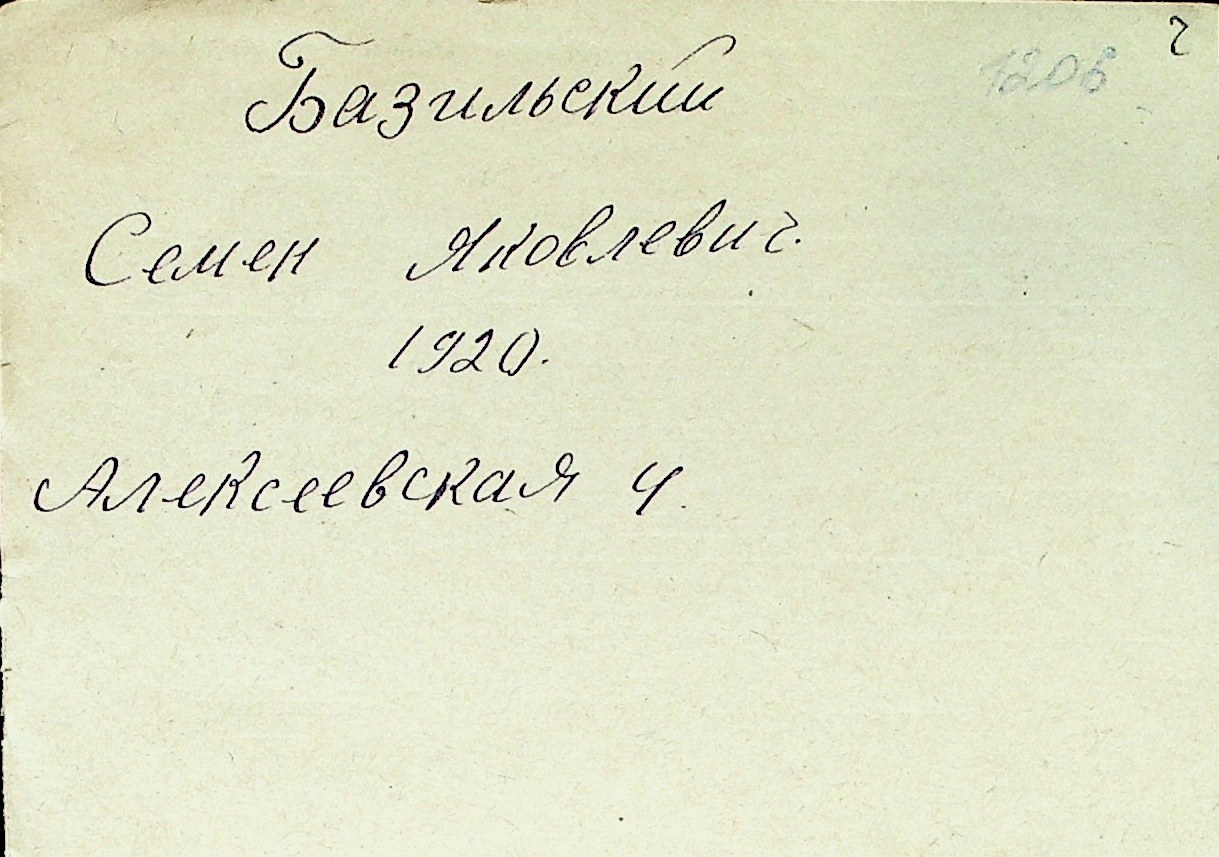 1206
Базильский
Семен Яковлевич.
1920.
Алексеевская 4.